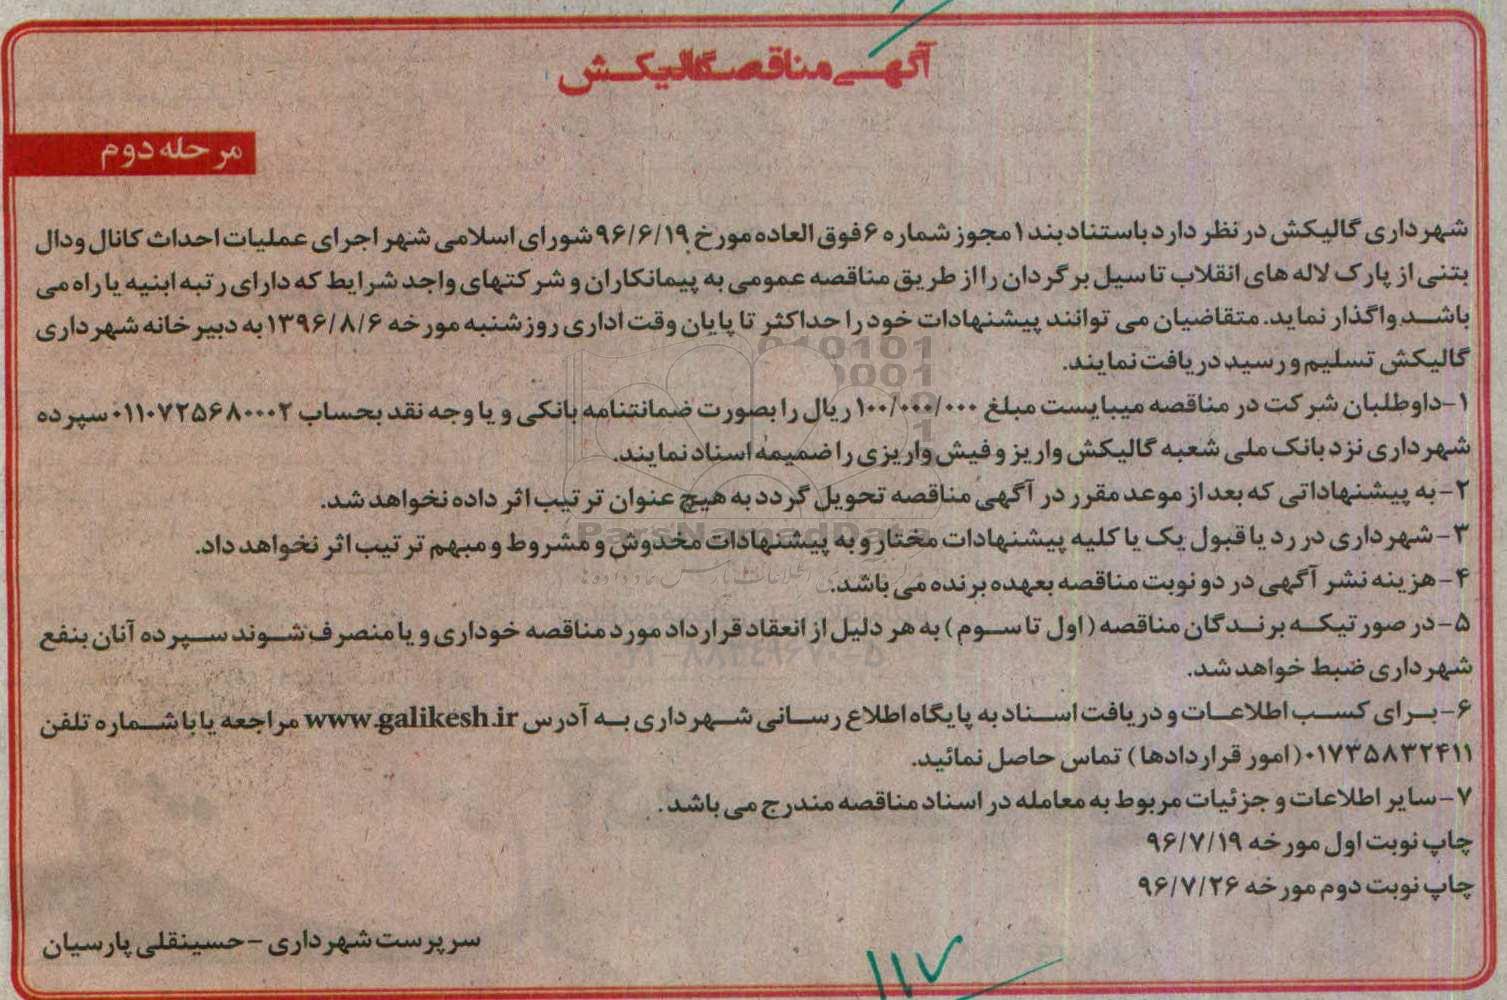 آگهی مناقصه گالیکش
مرحله دوم
شهرداری گالیکش در نظر دارد باستناد بند ۱ مجوز شماره ۶ فوق العاده مورخ ۹۶/۶/۱۹ شورای اسلامی شهر اجرای عملیات احداث کانال ودال
بتنی از پارک لاله های انقلاب تا سیل برگردان را از طریق مناقصه عمومی به پیمانکاران و شرکتهای واجد شرایط که دارای رتبه ابنیه یا راه می
باشد، واگذار نماید. متقاضیان می توانند پیشنهادات خود را حداکثر تا پایان وقت اداری روز شنبه مورخه ۱۳۹۶/۸/۶ به دبیرخانه شهرداری
گالیکش تسلیم و رسید دریافت نمایند.
۱- داوطلبان شرکت در مناقصه میبایست مبلغ ۱۰۰/۰۰۰/۰۰۰ ریال را بصورت ضمانتنامه بانکی و یا وجه نقد بحساب ۰۱۱۰۷۲۵۶۸۰۰۰۲ سپرده
شهرداری نزد بانک ملی شعبه گالیکش واریز و فیش واریزی را ضمیمه اسناد نمایند.
۲- به پیشنهاداتی که بعد از موعد مقرر در آگهی مناقصه تحویل گردد به هیچ عنوان ترتیب اثر داده نخواهد شد.
۳- شهرداری در رد یا قبول یک یا کلیه پیشنهادات مختار و به پیشنهادات مخدوش و مشروط و مبهم ترتیب اثر نخواهد داد.
۴- هزینه نشر آگهی در دو نوبت مناقصه بعهده برنده می باشد.
۵- در صورتیکه برندگان مناقصه (اول تا سوم) به هر دلیل از انعقاد قرارداد مورد مناقصه خوداری و یا منصرف شوند سپرده آنان بنفع
شهرداری ضبط خواهد شد.
۶- برای کسب اطلاعات و دریافت اسناد به پایگاه اطلاع رسانی شهرداری به آدرس www.galikesh.ir مراجعه یا با شماره تلفن
۰۱۷۳۵۸۳۲۴۱۱ (امور قراردادها) تماس حاصل نمائید.
۷- سایر اطلاعات و جزئیات مربوط به معامله در اسناد مناقصه مندرج می باشد.
چاپ نوبت اول مورخه ۹۶/۷/۱۹
چاپ نوبت دوم مورخه ۹۶/۷/۲۶
سرپرست شهرداری - حسینقلی پارسیان
۱۱۷
ParsNamadData